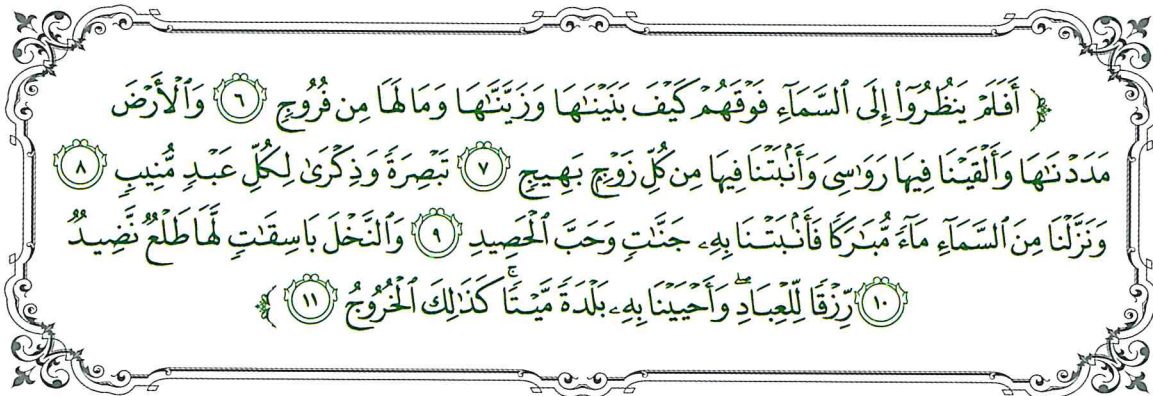 ﴿ أَفَلَمْ يَنظُرُوٓا۟ إِلَى ٱلسَّمَآءِ فَوْقَهُمْ كَيْفَ بَنَيْنَٰهَا وَزَيَّنَّٰهَا وَمَا لَهَا مِن فُرُوجٍ ٦ وَٱلْأَرْضَ
مَدَدْنَٰهَا وَأَلْقَيْنَا فِيهَا رَوَٰسِىَ وَأَنۢبَتْنَا فِيهَا مِن كُلِّ زَوْجٍۭ بَهِيجٍ ٧ تَبْصِرَةً وَذِكْرَىٰ لِكُلِّ عَبْدٍ مُّنِيبٍ ٨
وَنَزَّلْنَا مِنَ ٱلسَّمَآءِ مَآءً مُّبَٰرَكًا فَأَنۢبَتْنَا بِهِۦ جَنَّٰتٍ وَحَبَّ ٱلْحَصِيدِ ٩ وَٱلنَّخْلَ بَاسِقَٰتٍ لَّهَا طَلْعٌ نَّضِيدٌ
١٠ رِّزْقًا لِّلْعِبَادِ ۖ وَأَحْيَيْنَا بِهِۦ بَلْدَةً مَّيْتًا ۚ كَذَٰلِكَ ٱلْخُرُوجُ ١١ ﴾